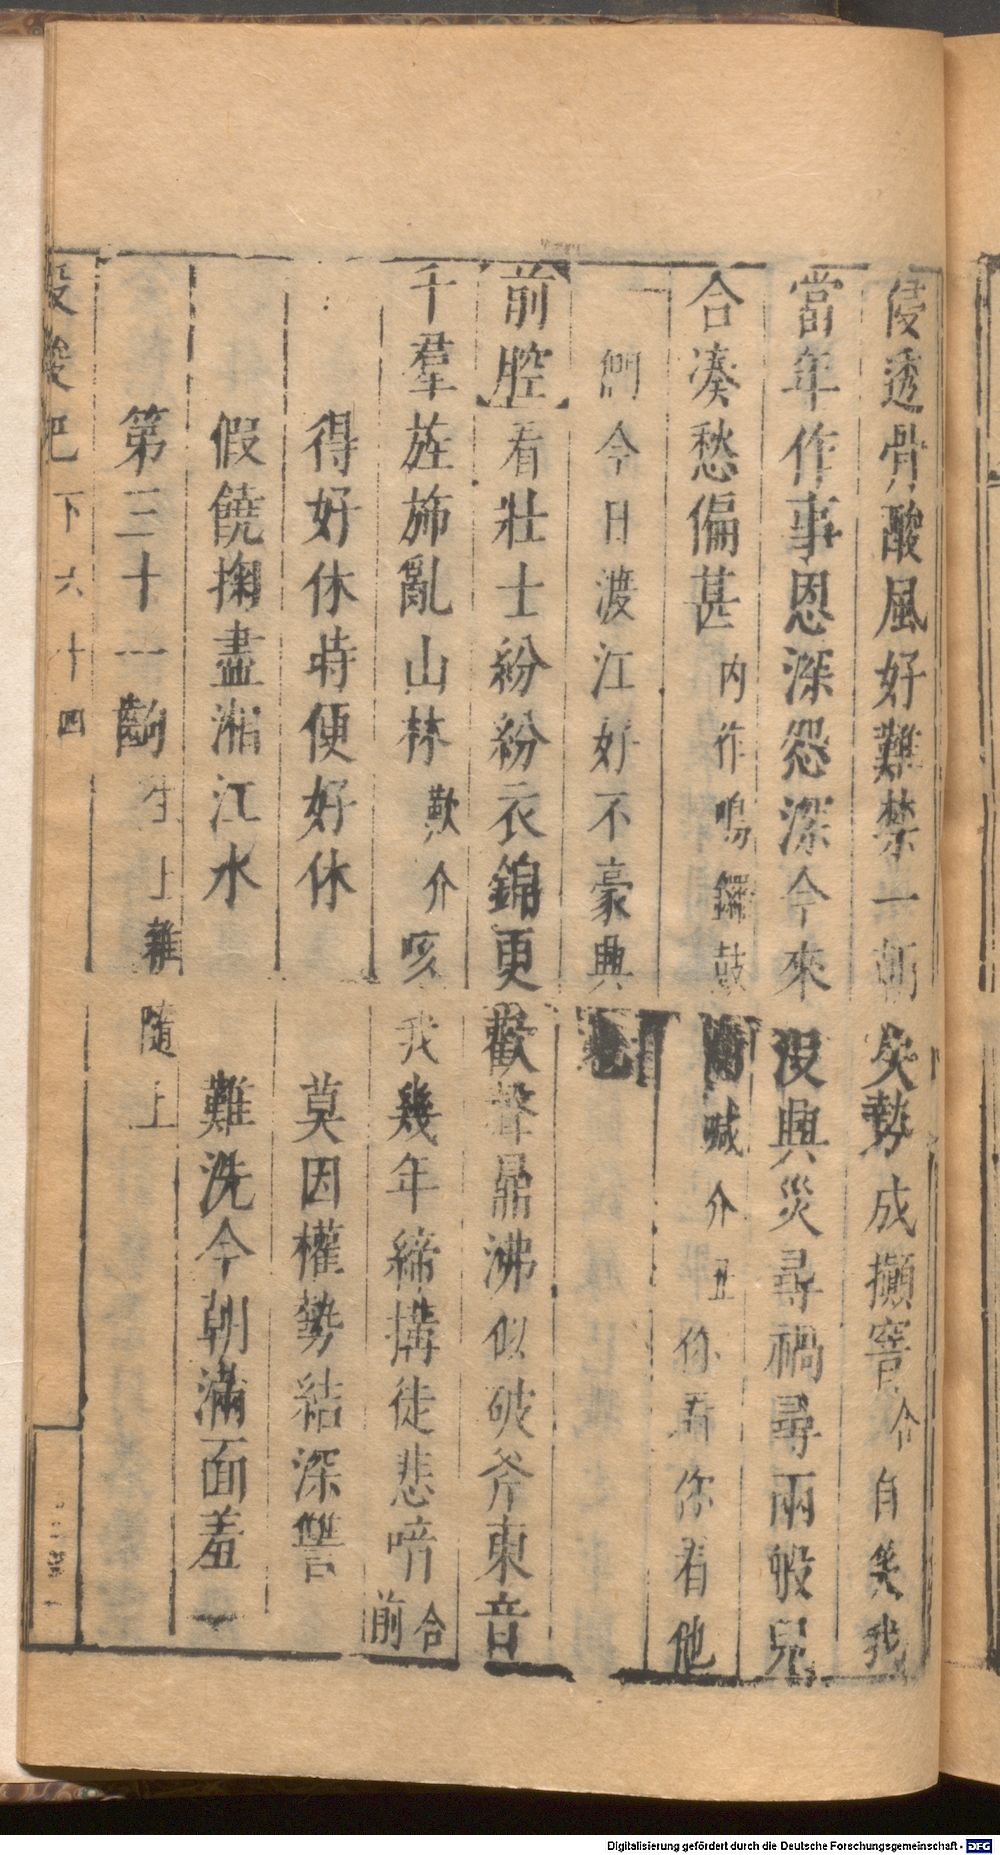 侵透骨酸風好難禁一朝失勢成攧窨合自笑我
當年作事恩深怨深今來沒興災尋禍尋兩般兒
合湊愁偏甚內作鳴鑼鼓吶喊介丑你看你看他
們今日渡江好不豪興
前腔看壯士紛紛衣錦更歡聲鼎沸似破斧東音
千羣旌斾亂山林歎介咳我幾年締搆徒悲喑合前
得好休時便好休 莫因權勢結深讐
假饒掬盡湘江水 難洗今朝滿面羞
第三十一齣生上雜隨上
記 下 六十四
Digitalisierung gefördert durch die Deutsche Forschungsgemeinschaft - DFG